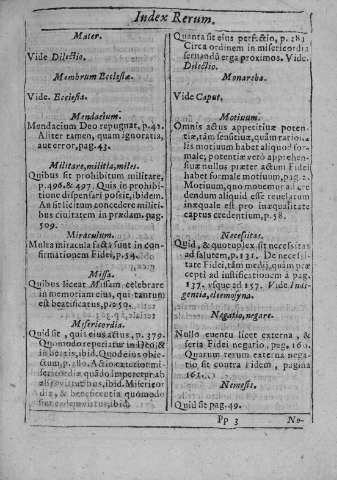 Index Rerum.
Mater.
Vide Dilectio.
Membrum Ecclesiæ.
Vide. Ecclesia.
Mendacium.
Mendacium Deo repugnat, p.41.
Aliter tamen, quam ignoratia,
aut error, pag.43.
Militare, militia, miles.
Quibus sit prohibitum militare,
p.496.& 497. Quis in prohibi-
tione dispensari possit, ibidem.
An sit licitum concedere militi-
bus civitatem in prædam. pag.
509.
Miraculum.
Multa miracula facta sunt in con-
firmationem Fidei, p.54.
Missa.
Quibus liceat Missam celebrare
in memoriam eius, qui tantum
est beatificatus, p.50.
Misericordia.
Quid sit, quis eius actus, p.379.
Quomodo reperitur in Deo, &
in beatis, ibid. Quod eius obie-
ctum, p.380. Actio exterior mi-
sericordiæ quãdo imperetur ab
alijs virtutibus, ibid. Misericor
dia, & beneficentia quomodo
sint eadem virtus, ibid.
Quanta sit eius perfectio, p.381
Circa ordinem in misericordia
seruandũ erga proximos. Vide.
Dilectio.
Monarcha.
Vide Caput.
Motiuum.
Omnis actus appetitiuæ poten-
tiæ, tàm sensitiuæ, quàm rationa
lis motiuum habet aliquod for-
male; potentiæ verò apprehen-
siuæ nullus præter actum Fidei
habet formale motiuum, pag.2.
Motiuum, quo mouemur ad cre
dendum aliquid esse reuelatum
inæquale est pro inæqualitate
captus credentium, p.58.
Necessitas.
Quid, & quotuplex sit necessitas
ad salutem, p.131. De necessi-
tate Fidei, tàm medij, quàm præ
cepti ad iustificationem à pag.
137. vsque ad 157. Vide Indi-
gentia, eleemosyna.
Negatio, negare.
Nullo euentu licet externa, &
seria Fidei negatio, pag. 160.
Quarum rerum externa nega-
tio sit contra Fidem, pagina
162.
Nemesis.
Quid sit pag.49.
Pp 3
No-